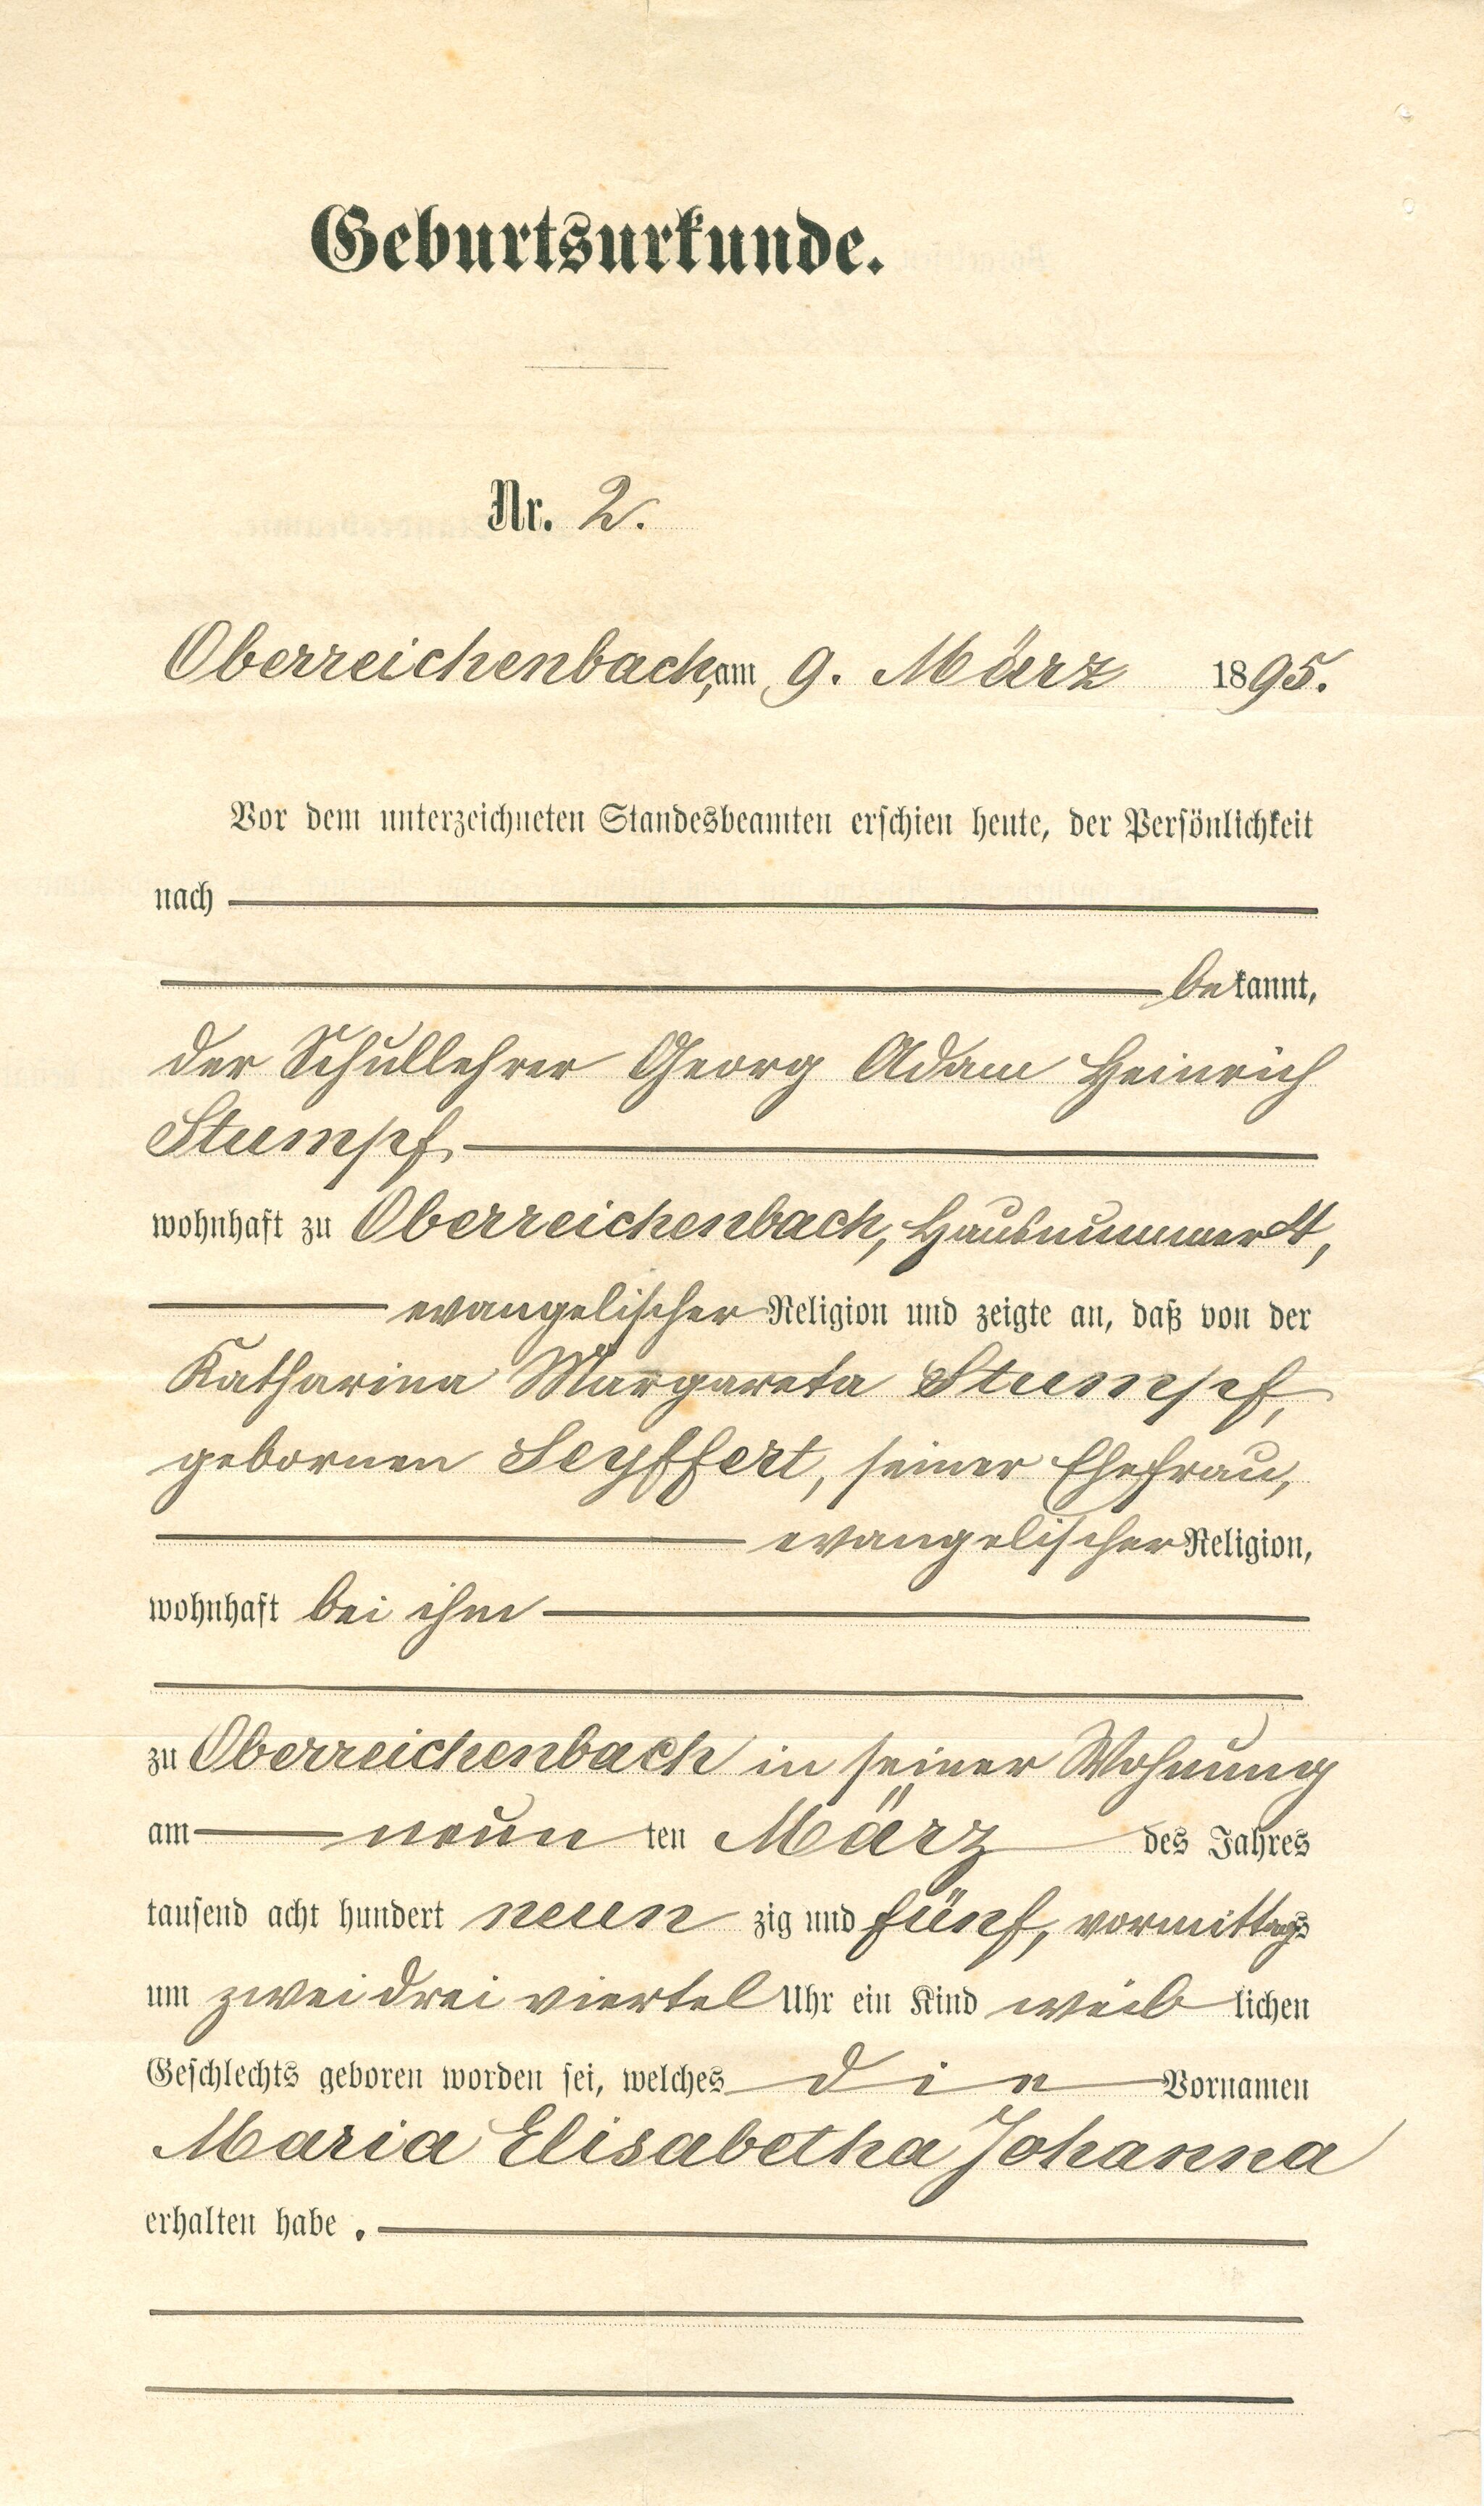 Geburtsurkunde.
Nr. 2.
Oberreichenbach, am 9. März 1895.
Vor dem unterzeichneten Standesbeamten erschien heute, der Persönlichkeit
nach
bekannt,
der Schullehrer Georg Adam Heinrich
Stumpf,
wohnhaft zu Oberreichenbach, Hausnummer 4,
evangelischer Religion und zeigte an, daß von der
Katharina Margareta Stumpf,
gebornen Seyffert, seiner Ehefrau,
evangelischer Religion,
wohnhaft bei ihm
zu Oberreichenbach in seiner Wohnung
am neun ten März des Jahres
tausend acht hundert neun zig und fünf, vormittags
um zwei drei viertel Uhr ein Kind weib lichen
Geschlechts geboren worden sei, welches die Vornamen
Maria Elisabetha Johanna
erhalten habe.